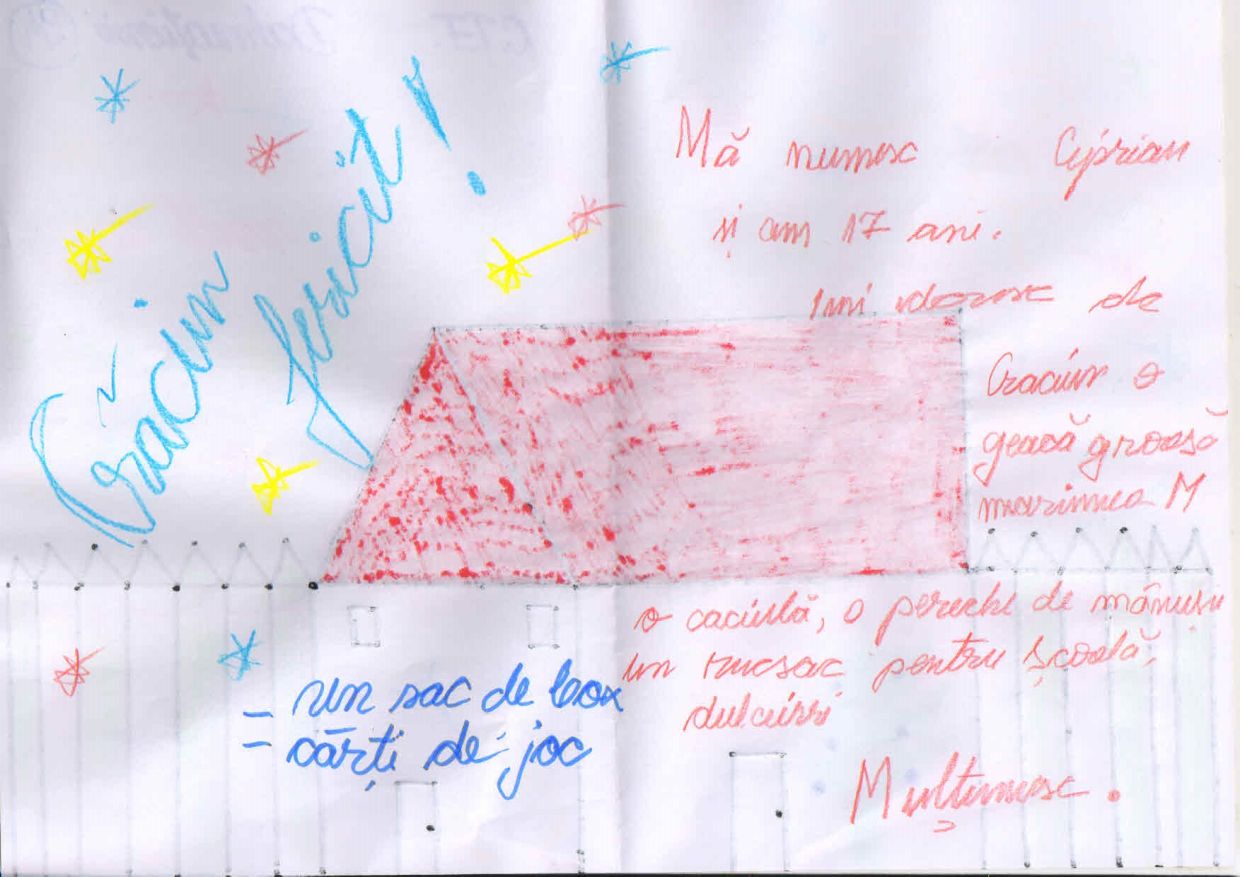 Crăciun
fericit!
Mă numesc Ciprian
și am 17 ani.
Imi doresc de
Craciun o
geacă groasă
marimea M
o caciulă, o pereche de mănuși
un rucsac pentru școală,
dulciuri
- un sac de box
- cărți de joc
Mulțumesc.